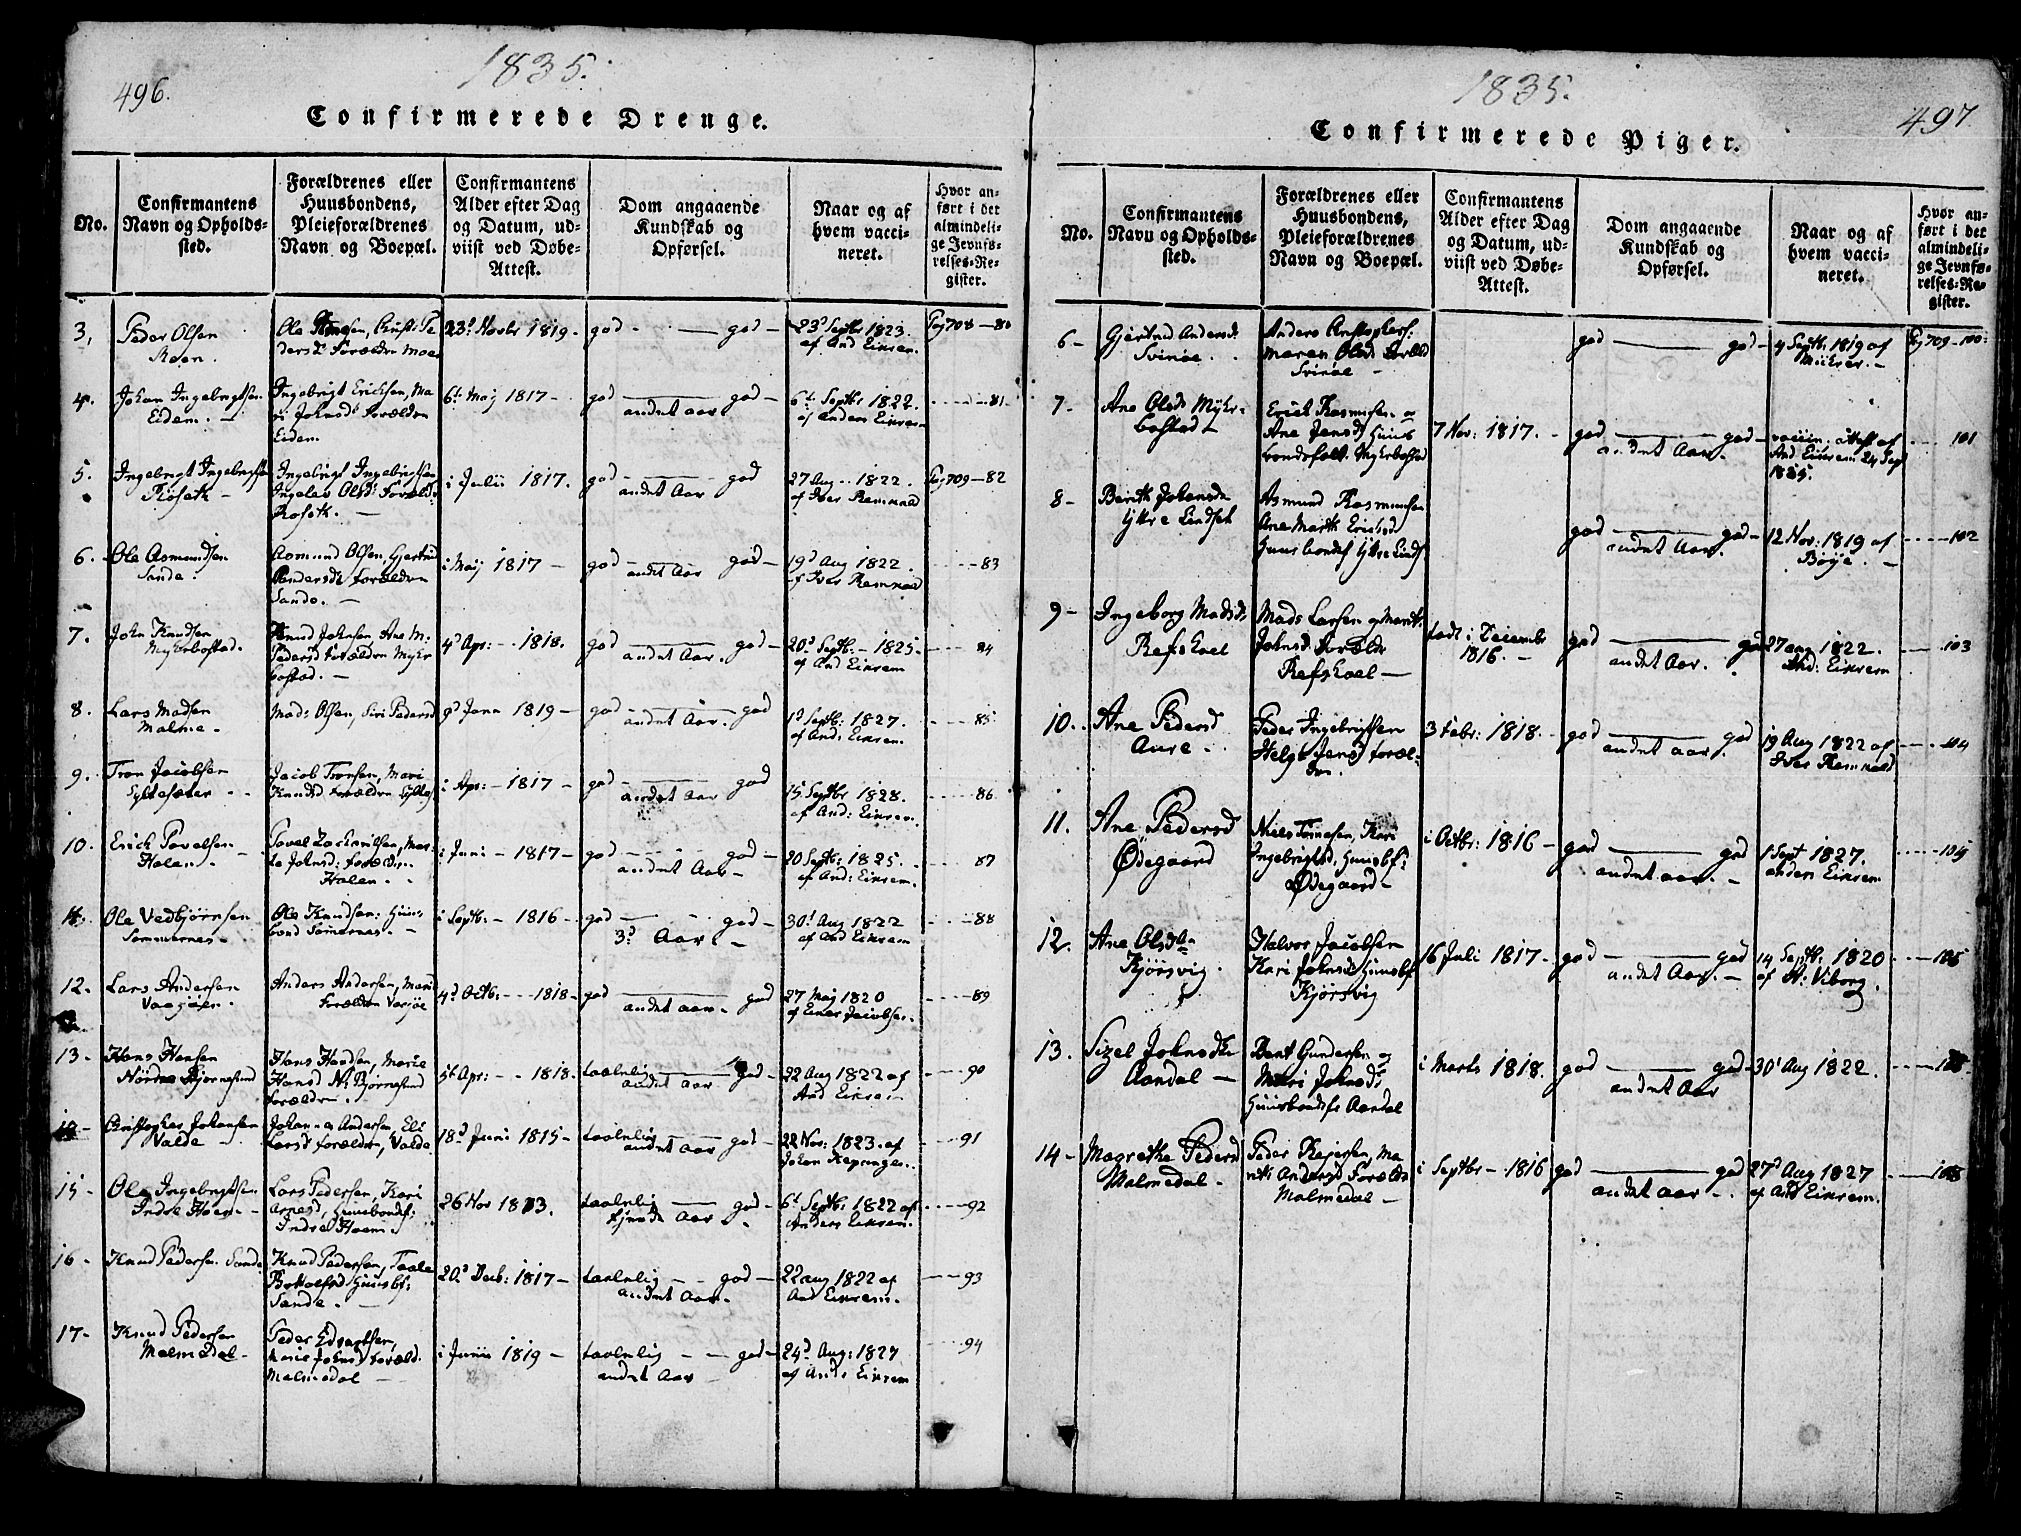 496.
1835.
Confirmerede Drenge.
No.
Confirmantens
Navn og Opholds-
sted.
Forældrenes eller
Huusbondens,
Pleieforældrenes
Navn og Boepæl.
Confirmantens
Alder efter Dag
og Datum, ud-
viist ved Døbe-
Attest.
Dom angaaende
Kundskab og
Opførsel.
Naar og af
hvem vacci-
neret.
Hvor an-
ført i det
almindeli-
ge Jevnfø-
relses-Re-
gister.
3, Peder Olsen
Moen.
Pe
dersd: Forældre Moen
23d Novbr 1819.
god — god
23d Septbr 1823.
af And Eikrem.
Pag 708 — 80
4. Johan Ingebrigtsen
Eidem. —
Ingebrigt Ericksen, Ma
ri Johnsd: Forældre
Eidem.
6t Maj 1817 —
god — god —
andet aar
6t Septbr 1822.
af Anders Eikrem
81
5. Ingebrigt Ingebrigtsen
Roseth —
Ingebrigt Ingebrigtsen
Olsd: Foræld:
Roseth. —
i Julii 1817.
god — god
andet Aar
27 Aug — 1822.
af Iver Remmald
Pag 709 — 82
6. Ole Asmundsen
Sande.
Asmund Olsen, Gjertrud
Andersd: Forældre
Sande. —
i Maij 1817 —
god — god —
andet Aar
19d Aug 1822.
af Iver Remmald
83
7. John Knudsen
Myrbostad.
Knud Johnsen, Ane M.
Pedersd Forældre Myr
bostad. —
4d Apr: — 1818.
god — god —
andet Aar.
20d Septb: — 1825.
af And Eikrem
84
8. Lars Madsen
Malme —
Mads Olsen, Siri Pedersd
9d Janr 1819 —
god — god
andet Aar.
1d Septb: 1827.
af And: Eikrem.
85
9. Tron Jacobsen
Syltesæter
Jacob Tronsen, Mari
Knudsd Forældre
i Apr: — 1817 —
god — god
andet Aar
15 Septbr 1828.
af And: Eikrem.
86
10. Erick Povelsen
Halen.
Povel
Johnsd: Forældre.
Halen.
i Juni — 1817 —
god — god —
andet Aar —
20 Septbr: 1825.
af And: Eikrem.
87
11. Ole Vedbjørnsen
Sommernes —
Ole Knudsen: Huus-
bond Somernes. —
i Septb: — 1816 —
god — god —
3d Aar. —
30t Aug 1822
af And Eikrem
88
12. Lars Andersen
Vaagøen.
Anders Andersen, Mari
Forældre
4d Octb: — 1818 —
god — god
andet aar. —
27 Maj 1820
af Einer Jacobsen.
89
13. Hans Hansen
Nordre Bjørnesund
Hans Hansen, Marie
Hansd N: Bjørnesund
Forældre.
5t Apr: — 1818.
taalelig — god —
andet aar
22 Aug 1822 af
And Eikrem
90
14 — Christopher Johansen
Valde —
Andersen, Eli
Larsd Forældre, Valde
18d Juni 1815 —
taalelig — god —
andet Aar
22 Nov: 1823. af
Johan
91
15 — Ole Ingebrigtsen
Indre Hoem —
Lars Pedersen, Kari
Arnesd, Huusbondf:
Indre Hoem.
26 Nov 1813.
taalelig — god —
fjerde Aar
6t Septbr 1822 af
Anders Eikrem.
92
16 — Knud Pedersen Sande
Knud Pedersen,
Huusbf:
Sande. —
20d Decb: 1817 —
taalelig — god —
andet Aar.
22 aug 1822 af
And Eikrem.
93
17 — Knud Pedersen
Malmedal —
Peder
Marie Johnsd Foræld.
Malmedal —
i Junii 1819 —
taalelig — god —
andet Aar —
24d Aug: 1827
af And: Eikrem
94
1835.
497
Confirmerede Piger.
No.
Confirmantens
Navn og Opholds-
sted.
Forældrenes eller
Huusbondens,
Pleieforældrenes
Navn og Boepæl.
Confirmantens
Alder efter Dag
og Datum, ud-
viist ved Døbe-
Attest.
Dom angaaende
Kundskab og
Opførsel.
Naar og af
hvem vacci-
neret.
Hvor an-
ført i det
almindeli-
ge Jevnfø-
relses-Re-
gister.
6 — Gjertrud Andersd:
Svinøe.
Anders
Maren Olsd Foræld
Svinøe —
god — god —
4 Septb. 1819 af
Pag 709 — 100
7. Ane Olsd: Mykr-
bostad —
Erick Rasmusen og
Ane Jensd: Huus
bondsfolk. Mykrbostad
7 Nov: 1817. —
god — god —
andet Aar.
vaccin: Attest af
And Eikrem 24 Sept
1835.
101
8 — Berith Johansdr
Yttre Lindset
Asmund Rasmussen
Ane Marth
Huusbondsf Yttre Linds
god — god —
andet Aar.
12 Nov: 1819 af
Bøije. —
102
9 — Ingeborg Madsd:
Refshoel
Mads Larsen og Marit
Johnsd: Foræld:
Refshoel —
født i Decembr
1816. —
god — god
andet Aar.
27 aug 1822.
And: Eikrem
103
10. Ane Pedersd
Aure
Peder Ingebrigtsen
Jensd foræl-
dre.
3 Febr: 1818.
god — god
andet aar.
19 Aug 1822 af
Iver Remmald
104
11. Ane Pedersd
Ødegaard
Niels Tørresen, Kari
Ingebrigtsd, Huusbf:
Ødegaard —
i Octbr: 1816 —
god — god
andet aar. —
1 Sept 1827.
anders Eikrem
12. Ane Olsdtr
Kjørsvig.
Halvor Jacobsen
Kari Johnsd Huusbf
Kjørsvig
16 Juli 1817 —
god — god
andet Aar. —
14 Septb: 1820
af H: Viborg.
13. Sizel Johnsdtr
Aandal —
Bent Gundersen og
Mari Johnsd:
Huusbondsf: Aandal
i Marts 1818.
god — god —
andet Aar
30t Aug 1822.
14 — Magrethe Pedersd
Malmedal —
Peder
Andersd Foræld:
Malmedal —
i Septbr — 1816
god — god
andet aar —
27d Aug 1827
af And Eikrem.